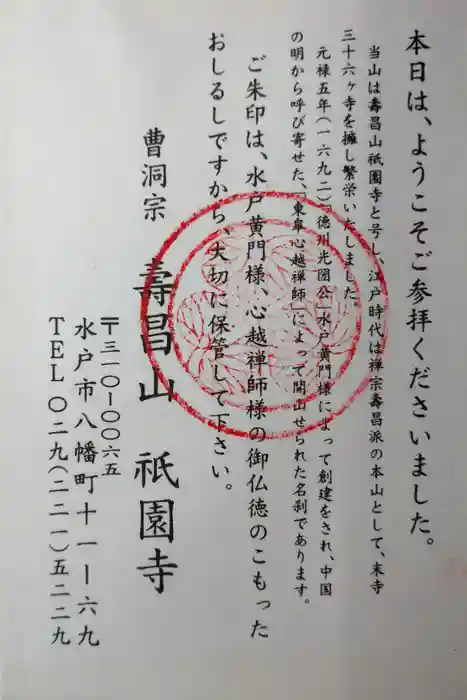 本日は、ようこそご参拝くださいました。
当山は壽昌山祇園寺と号し、江戸時代は禅宗壽昌派の本山として、末寺
三十六ヶ寺を擁し繁栄いたしました。
元禄五年(一六九二)「徳川光圀公」水戸黄門様によって創建をされ、中国
の明から呼び寄せた、「東皐心越禅師」によって開山せられた名刹であります。
ご朱印は、水戸黄門様、心越禅師様の御仏徳のこもった
おしるしですから、大切に保管して下さい。
曹洞宗 壽昌山 祇園寺
〒三一〇-〇〇六五
水戸市八幡町十一ー六九
TEL〇二九(二二一)五二二九